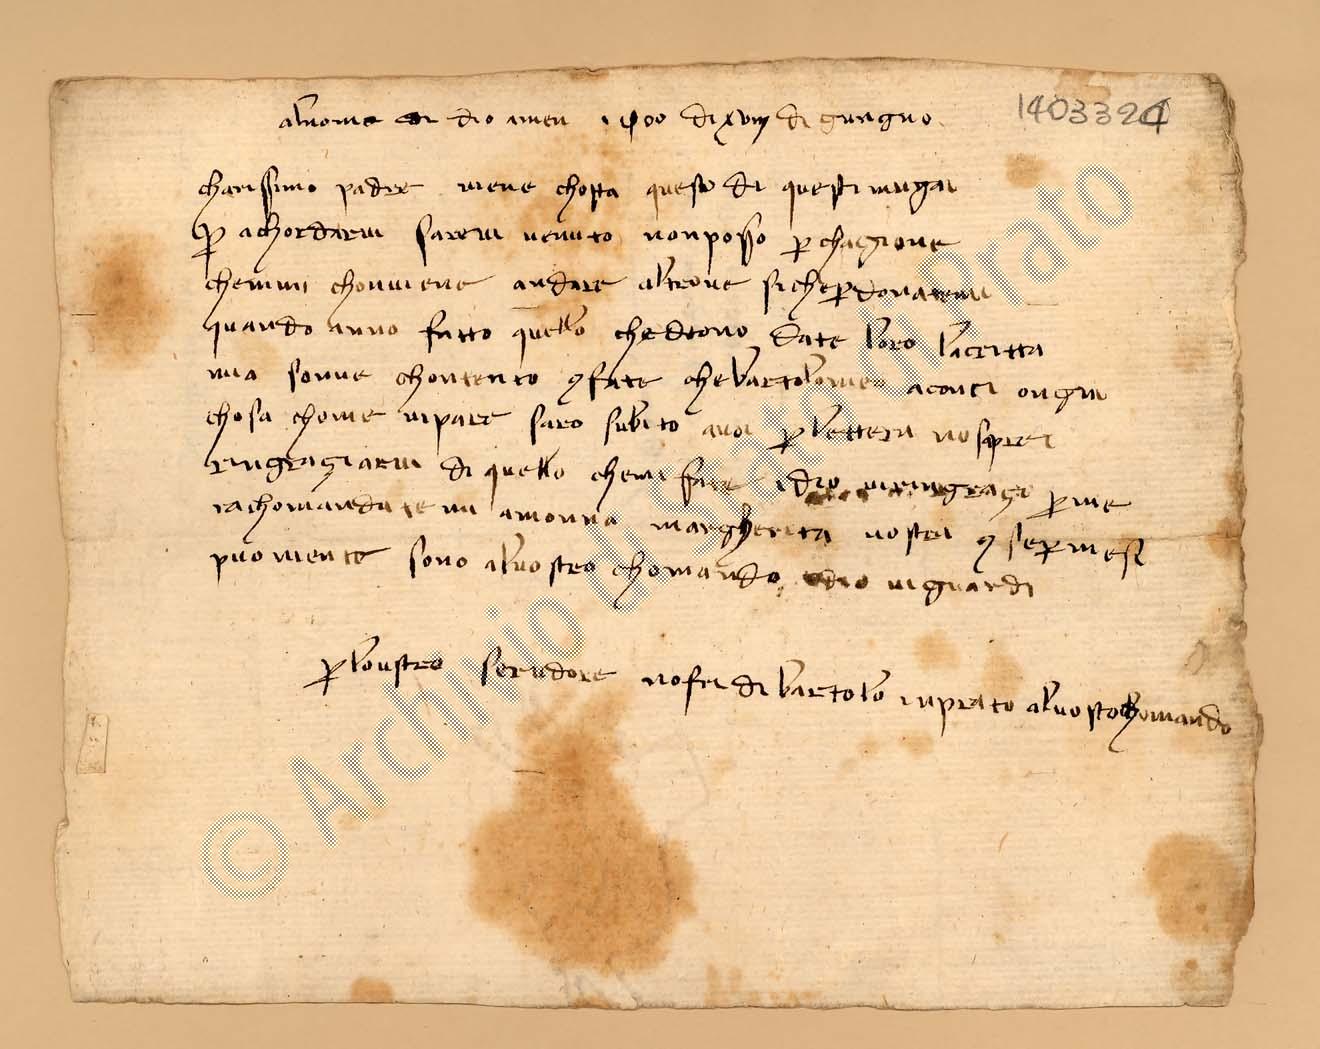 alnome di dio amen 1400 di xviii di gugno
1403324
charissimo padre viene chosta questo di questi mugai
p achordarvi sarevi venuto non posso p chagione
chemmi chonviene andare altrove si che pdonatemi
quando anno fatto quello chedeono date loro lacritta
mia sonne chontento e fate che bartolomeo aconci ongni
chosa chome vi pare saro subito a voi p lettera no sapre
ringraziarvi di quello chemi fate idio viringrazi p me
rachomandatemi a monna margherita vostra e se p mesi
puo niente sono alvostro chomando idio vi guardi
p lo vustro servidore nofri di bartolo in prato al vosto chomando
© Archivio di Stato di Prato